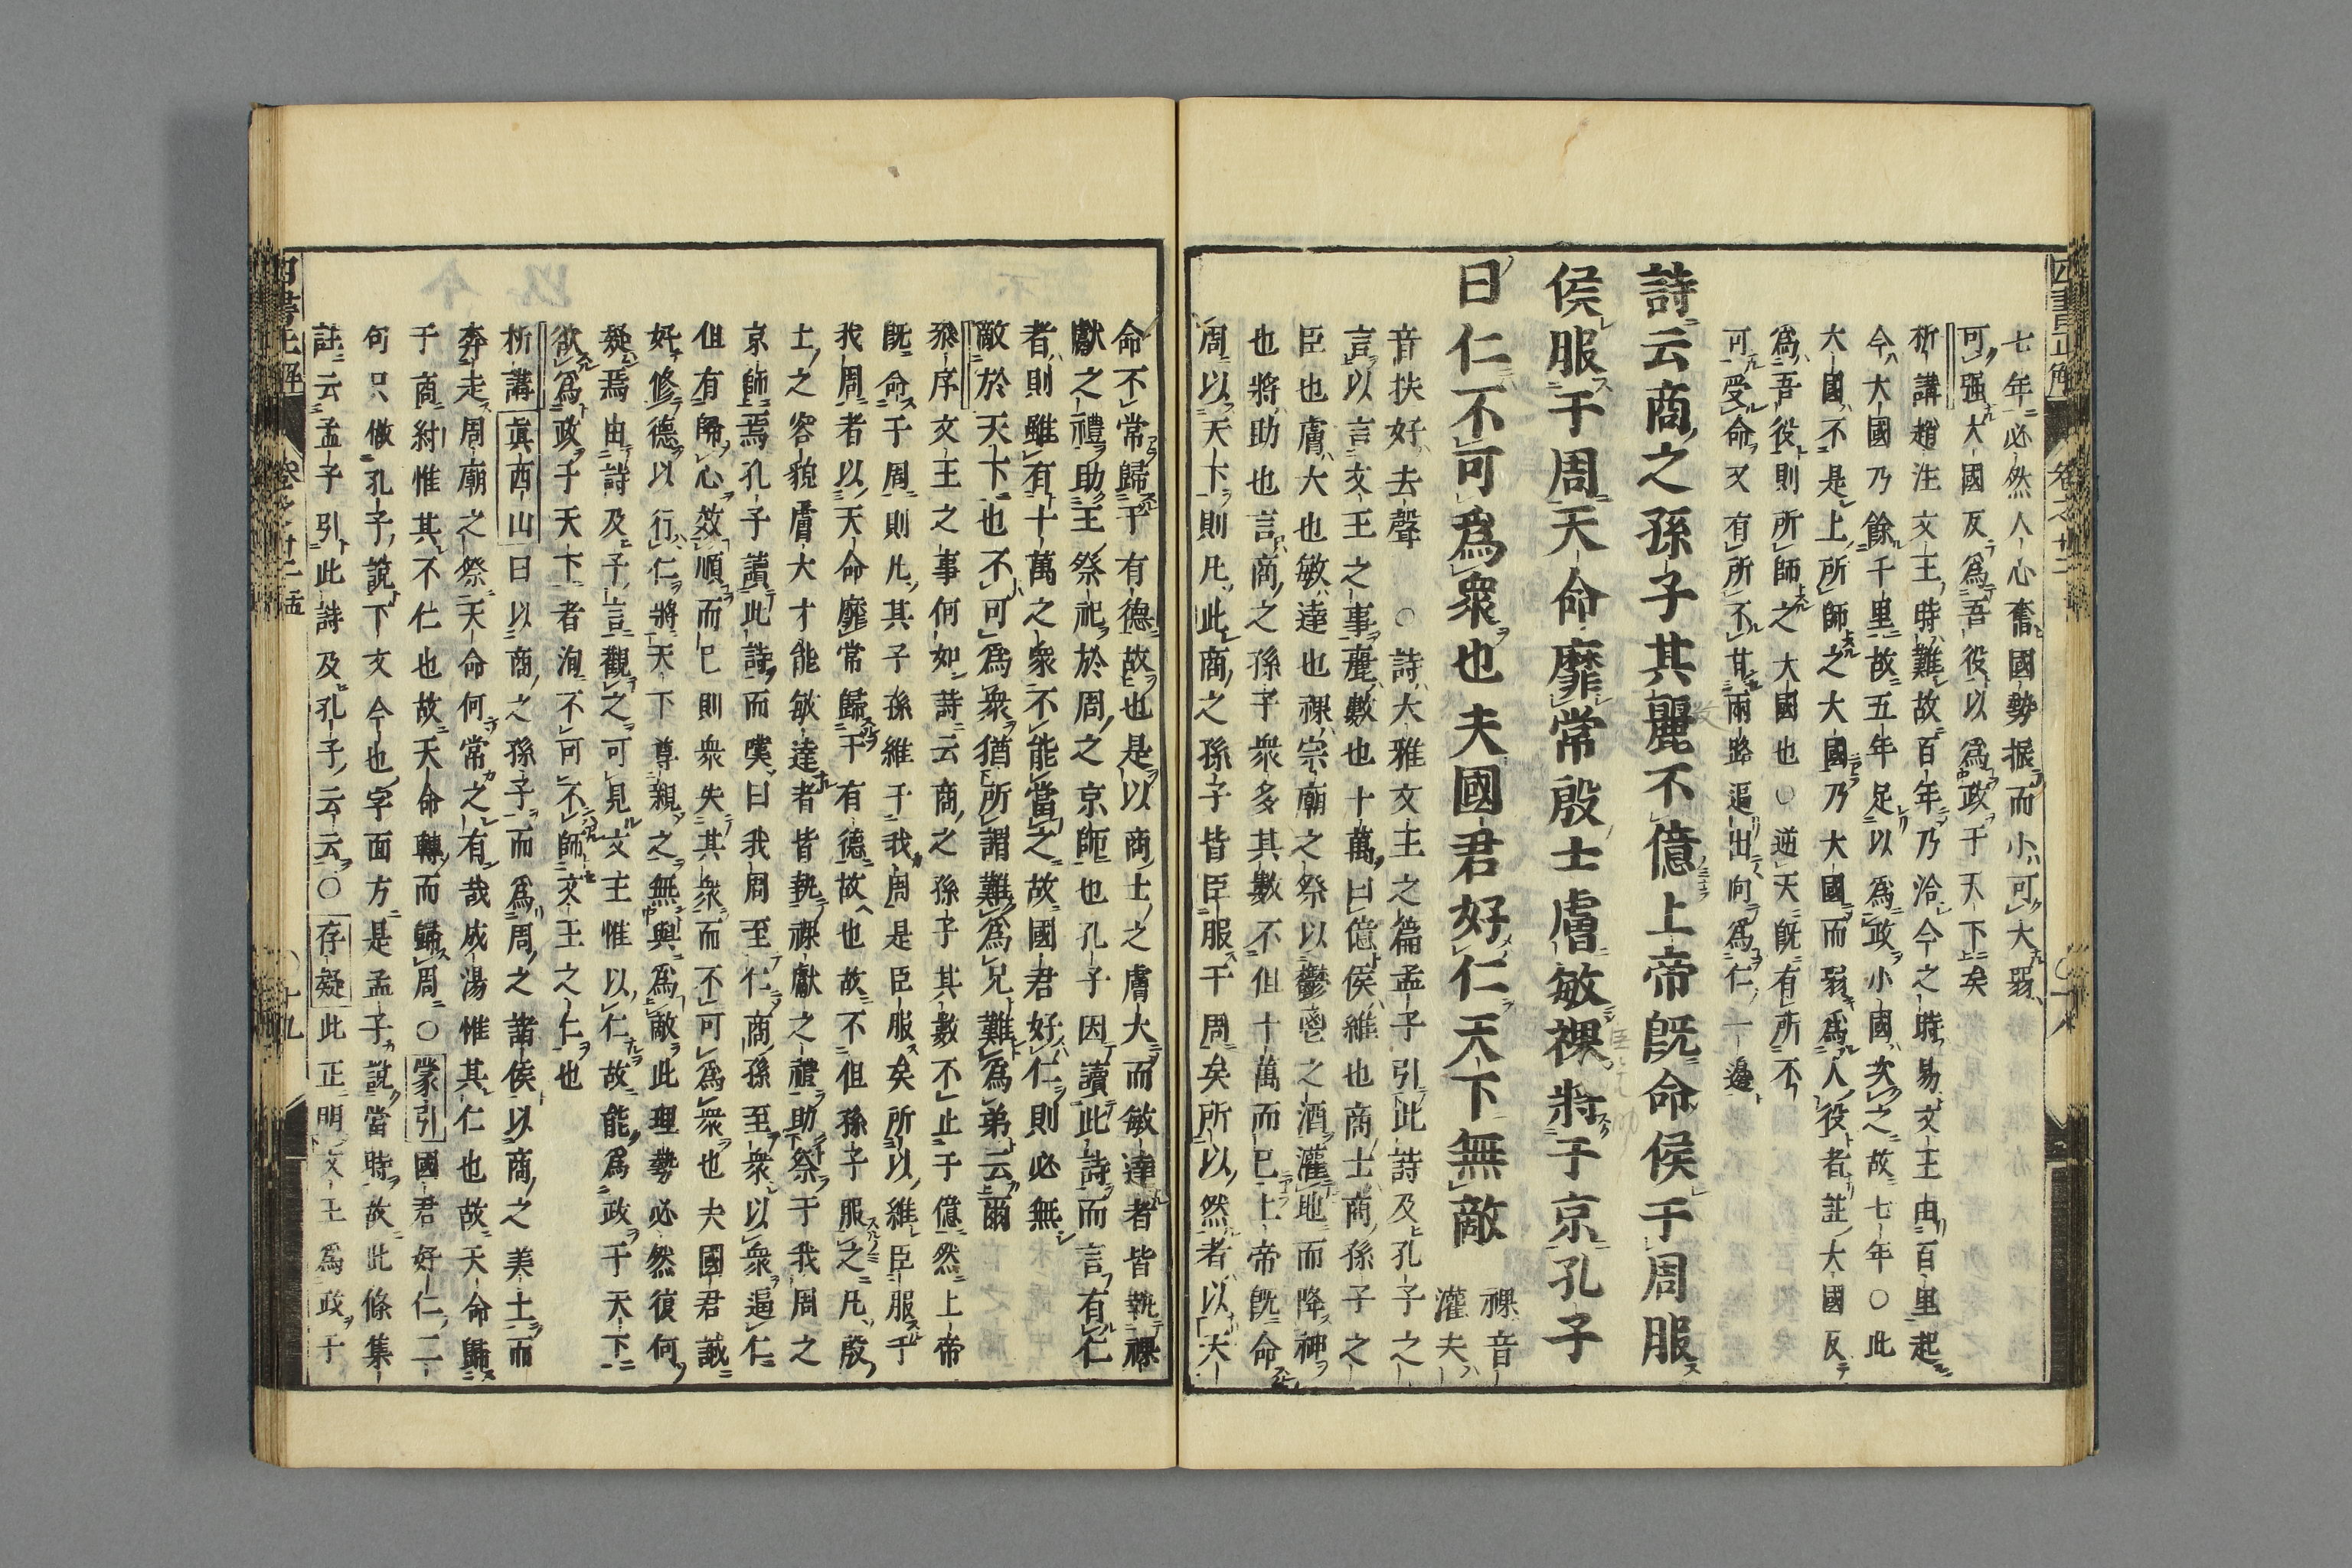 七年必然人心奮國勢振而小可大弱
可强大國反爲吾役以爲政于天下矣
析講趙注文王時難故百年乃洽今之時易文王由百里起
今大國乃餘千里故五年足以爲政小國次之故七年○此
大國不是上所師之大國乃大國而弱爲人役者註大國反
爲吾役則所師之大國也○逆天既有所不
可受命又有所不甘兩路逼出向爲仁一邊
詩云商之孫子其麗不億上帝既命侯于周服
侯服于周天命靡常殷士膚敏祼將于京孔子
曰仁不可爲衆也夫國君好仁天下無敵
祼音
灌夫
音扶好去聲○詩大雅文王之篇孟子引此詩及孔子之
言以言文王之事麗數也十萬曰億侯維也商士商孫子之
臣也膚大也敏達也祼宗廟之祭以鬱鬯之酒灌地而降神
也將助也言商之孫子衆多其數不但十萬而已上帝既命
周以天下則凡此商之孫子皆臣服于周矣所以然者以天
命不常歸于有德故也是以商士之膚大而敏達者皆執祼
獻之禮助王祭祀於周之京師也孔子因讀此詩而言有仁
者則雖有十萬之衆不能當之故國君好仁則必無
敵於天下也不可爲衆猶所謂難爲兄難爲弟云爾
序文王之事何如詩云商之孫子其數不止于億然上帝
既命于周則凡其子孫維于我周是臣服矣所以維臣服于
我周者以天命靡常歸于有德故也故不但孫子服之凡殷
士之容貌膚大才能敏達者皆執祼獻之禮助祭于我周之
京師焉孔子讀此詩而嘆曰我周至仁商孫至衆以衆逼仁
但有歸心效順而已則衆失其衆而不可爲衆也夫國君誠
好修德以行仁將天下尊親之無與爲敵此理勢必然復何
疑焉由詩及子言觀之可見文王惟以仁故能爲政于天下
欲爲政于天下者洵不可不師文王之仁也
析講眞西山曰以商之孫子而爲周之諸侯以商之美士而
奔走周廟之祭天命何常之有哉成湯惟其仁也故天命歸
于商紂惟其不仁也故天命轉而歸周○蒙引國君好仁二
句只倣孔子說下文今也字面方是孟子說當時故此條集
註云孟子引此詩及孔子云云○存疑此正明文王爲政于